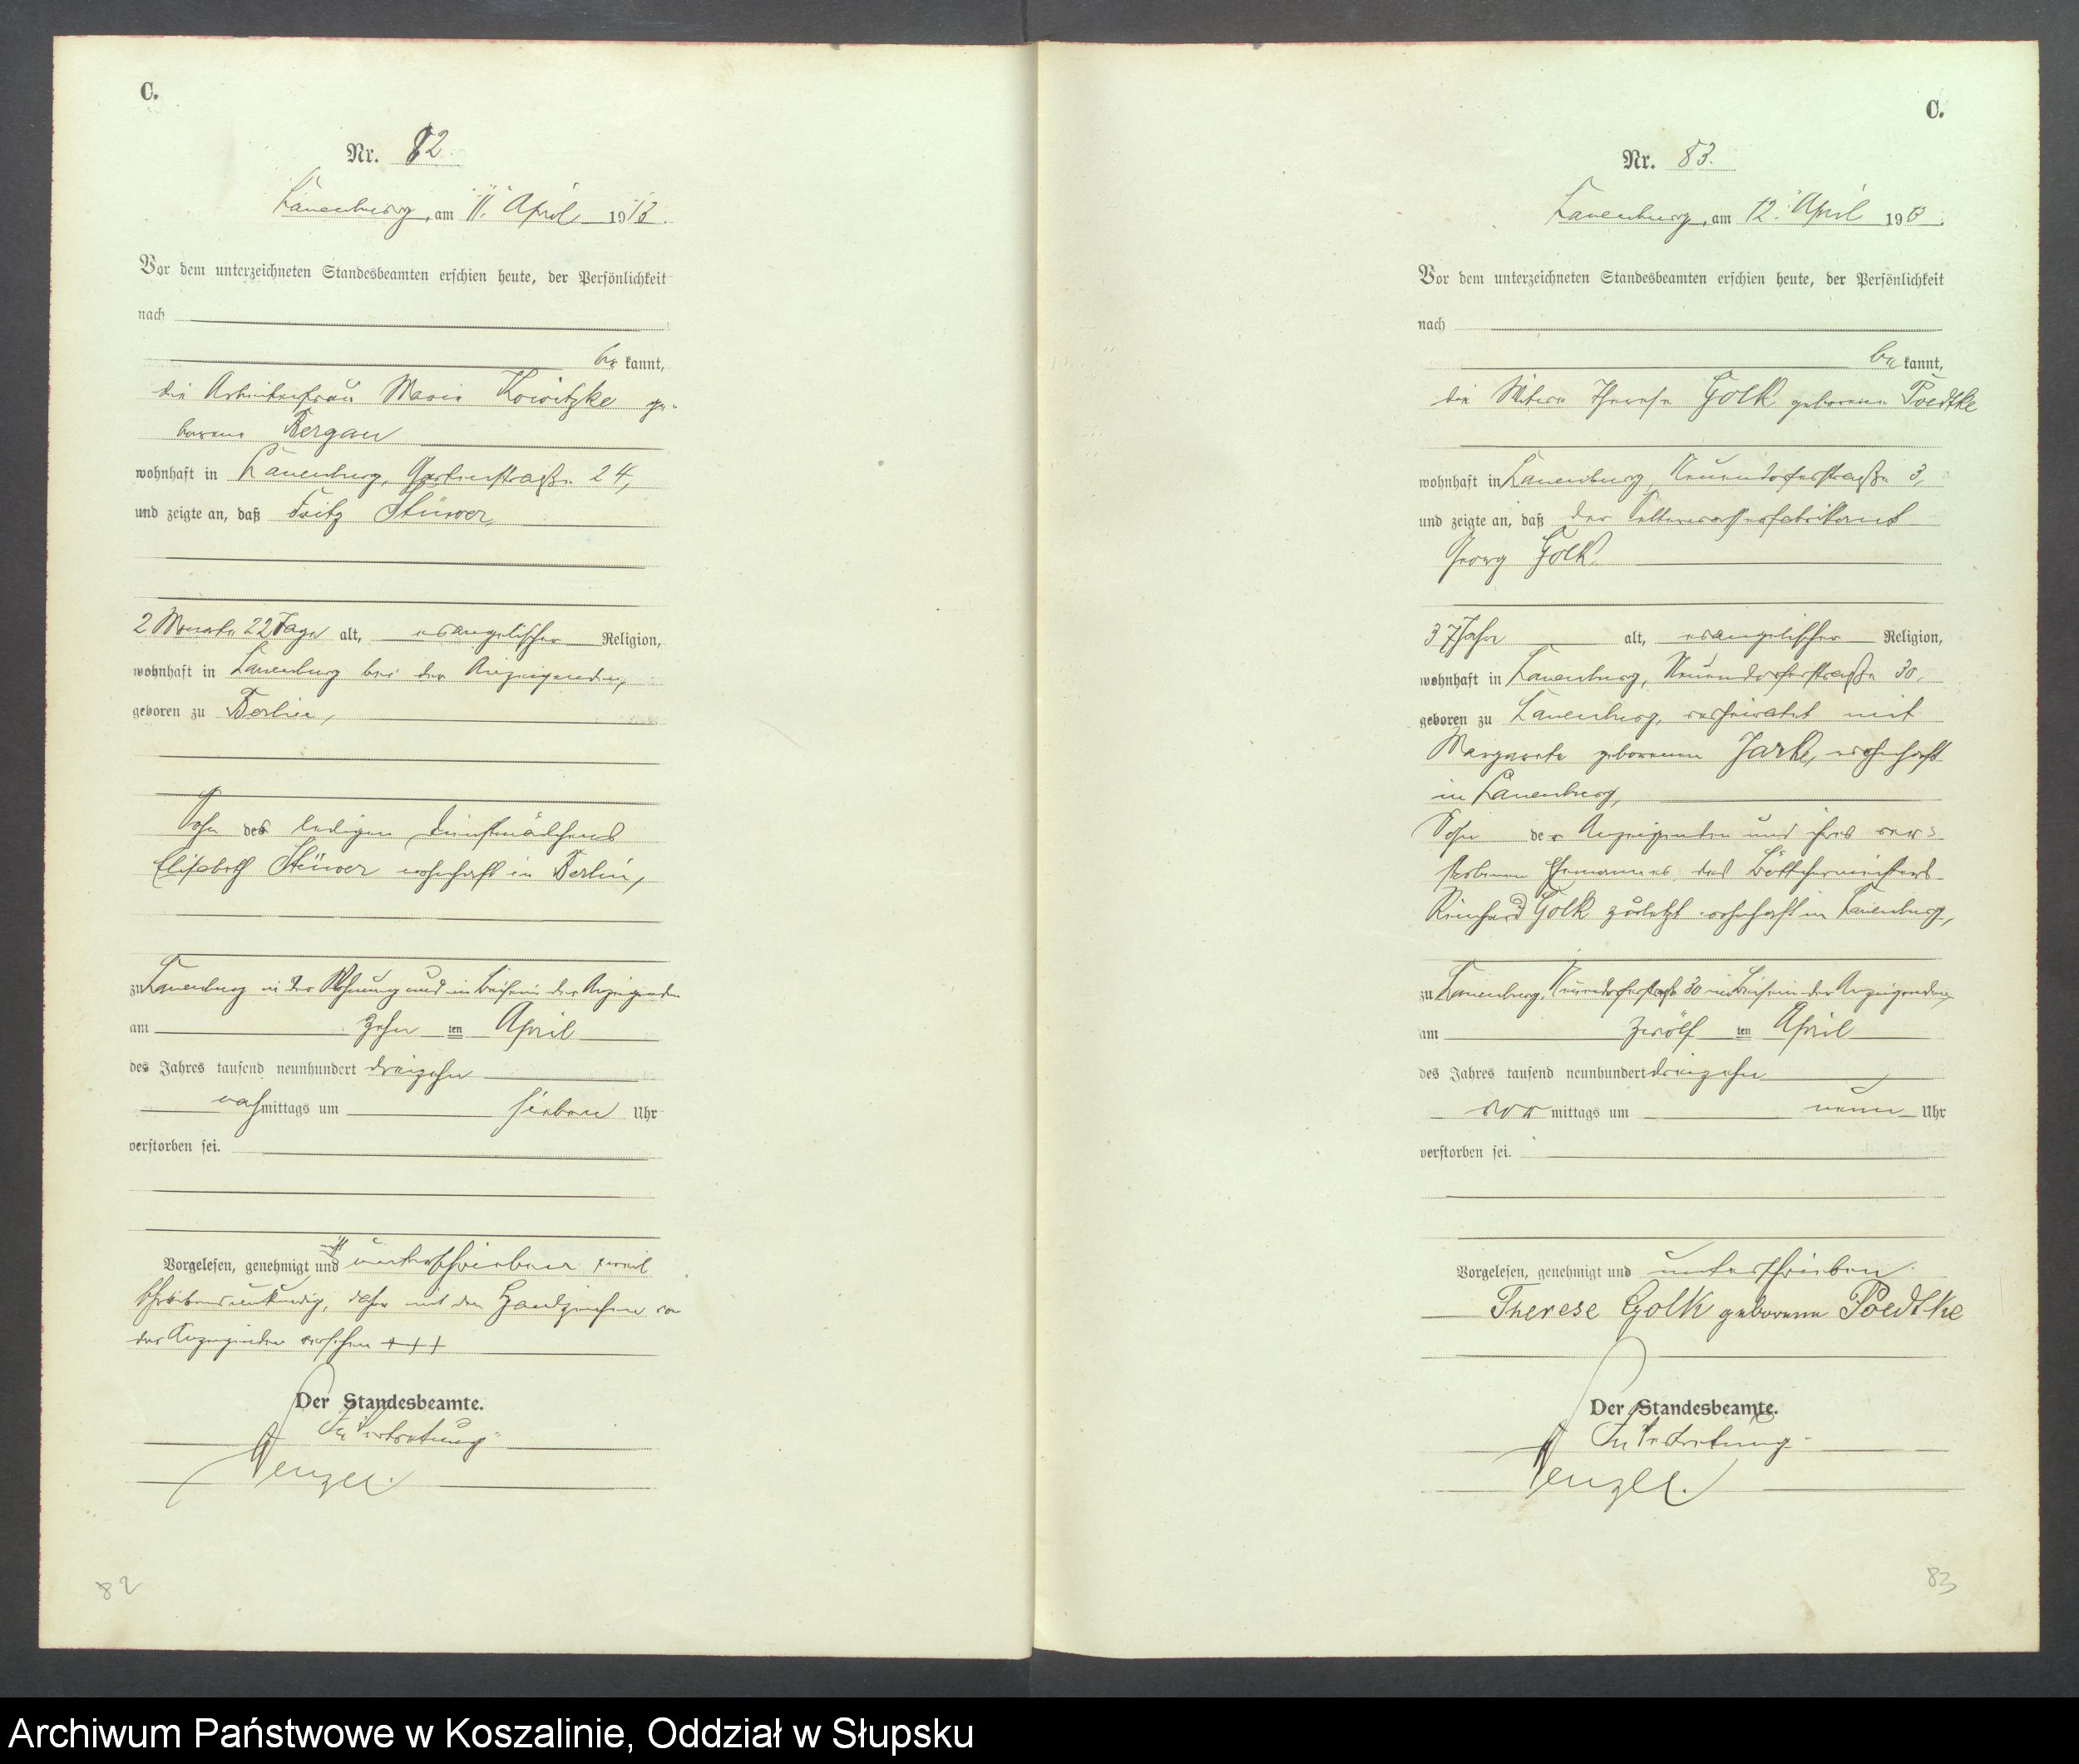 C.
Nr. 82.
Lauenburg, am 11. April 1913.
Vor dem unterzeichneten Standesbeamten erschien heute, der Persönlichkeit
nach
be kannt,
die Arbeiterfrau Maria Kowitzke ge-
borene Bergau
wohnhaft in Lauenburg, Gartenstraße 24,
und zeigte an, daß Fritz Stüwer,
2 Monate 22 Tage alt, evangelischer Religion,
wohnhaft in Lauenburg bei der Anzeigenden,
geboren zu Berlin,
Sohn des ledigen Dienstmädchens
Elisabeth Stüwer wohnhaft in Berlin,
zu Lauenburg in der Wohnung und im Beisein der Anzeigenden
am zehn ten April
des Jahres tausend neunhundert dreizehn
nachmittags um sieben Uhr
verstorben sei.
nicht
Vorgelesen, genehmigt und unterschrieben weil
schreibensunkundig, daher mit den Handzeichen von
der Anzeigenden versehen +++
Der Standesbeamte.
In Vertretung
Wenzel.
82
C.
Nr. 83.
Lauenburg, am 12. April 1913.
Vor dem unterzeichneten Standesbeamten erschien heute, der Persönlichkeit
nach
be kannt,
die Witwe Therese Golk geborene Poedtke
wohnhaft in Lauenburg, Neuendorferstraße 3,
und zeigte an, daß der Selterwasserfabrikant
Georg Golk
37 Jahre alt, evangelischer Religion,
wohnhaft in Lauenburg, Neuendorferstraße 30,
geboren zu Lauenburg, verheiratet mit
Margarete geborenen Jark, wohnhaft
in Lauenburg,
Sohn der Anzeigenden und ihres ver-
storbenen Ehemannes, des Böttchermeisters
Reinhard Golk zuletzt wohnhaft in Lauenburg,
zu Lauenburg, Neuendorferstraße 30 im Beisein der Anzeigenden,
am zwölf ten April
des Jahres tausend neunhundert dreizehn
vor mittags um neun Uhr
verstorben sei.
Vorgelesen, genehmigt und unterschrieben.
Therese Golk geborene Poedtke
Der Standesbeamte.
In Vertretung.
Wenzel.
83
Archiwum Państwowe w Koszalinie, Oddział w Słupsku